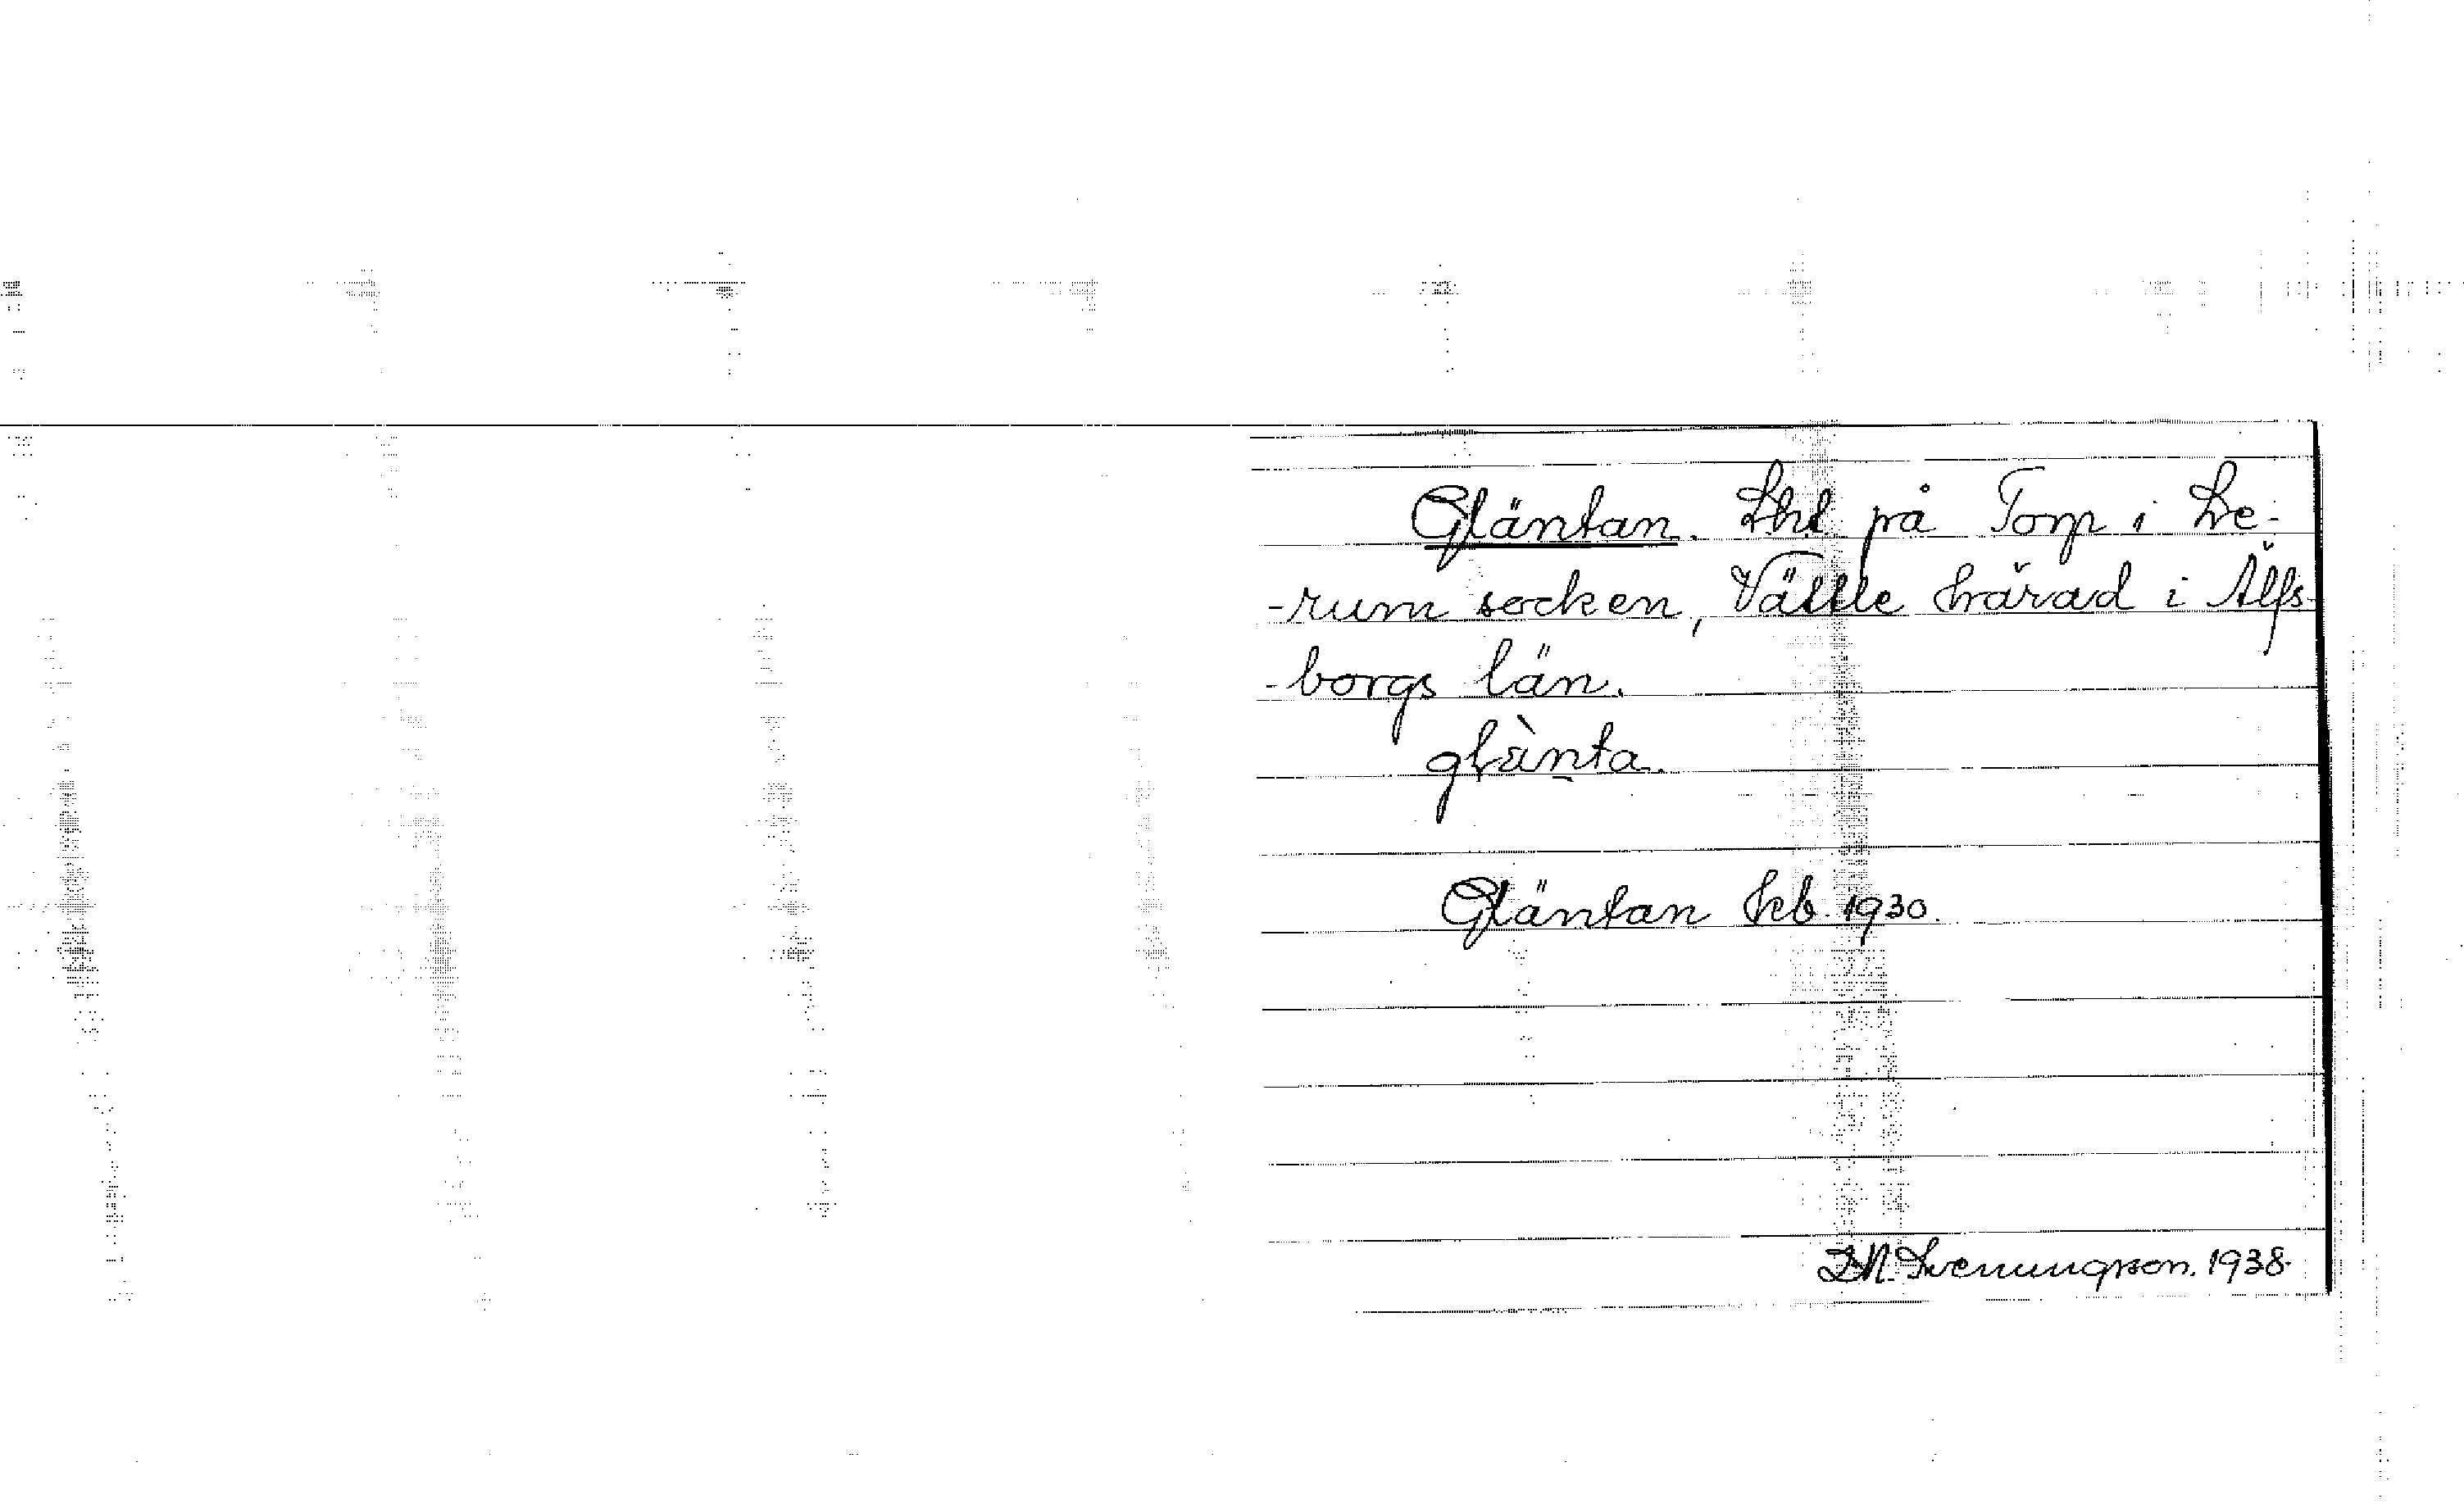 Gläntan. Lht på Torp i Le-
-rum socken, Vättle härad i Älfs-
-borgs län.
glànta.
Gläntan kb 1930.
Svenungsson. 1938.